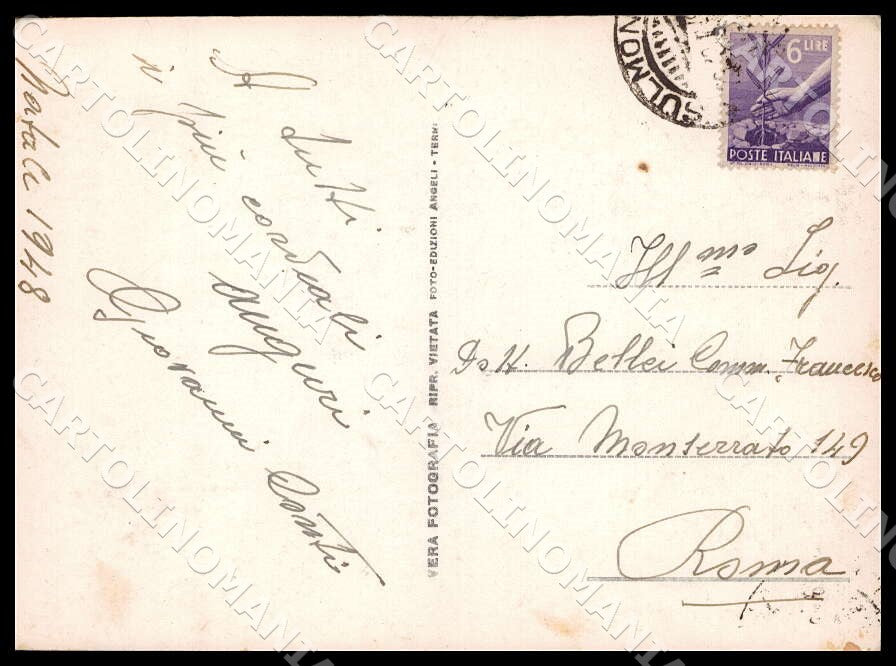 Natale 1948
A tutti
i più cordiali
auguri
Giovanni Conti
VERA FOTOGRAFIA RIPR. VIETATA FOTO-EDIZIONI ANGELI - TERNI
SULMONA
6 LIRE
POSTE ITALIANE
Ill mo Sig.
Dott. Bellei Comm. Francesco
Via Monserrato 149
Roma
CARTOLINOMANIA